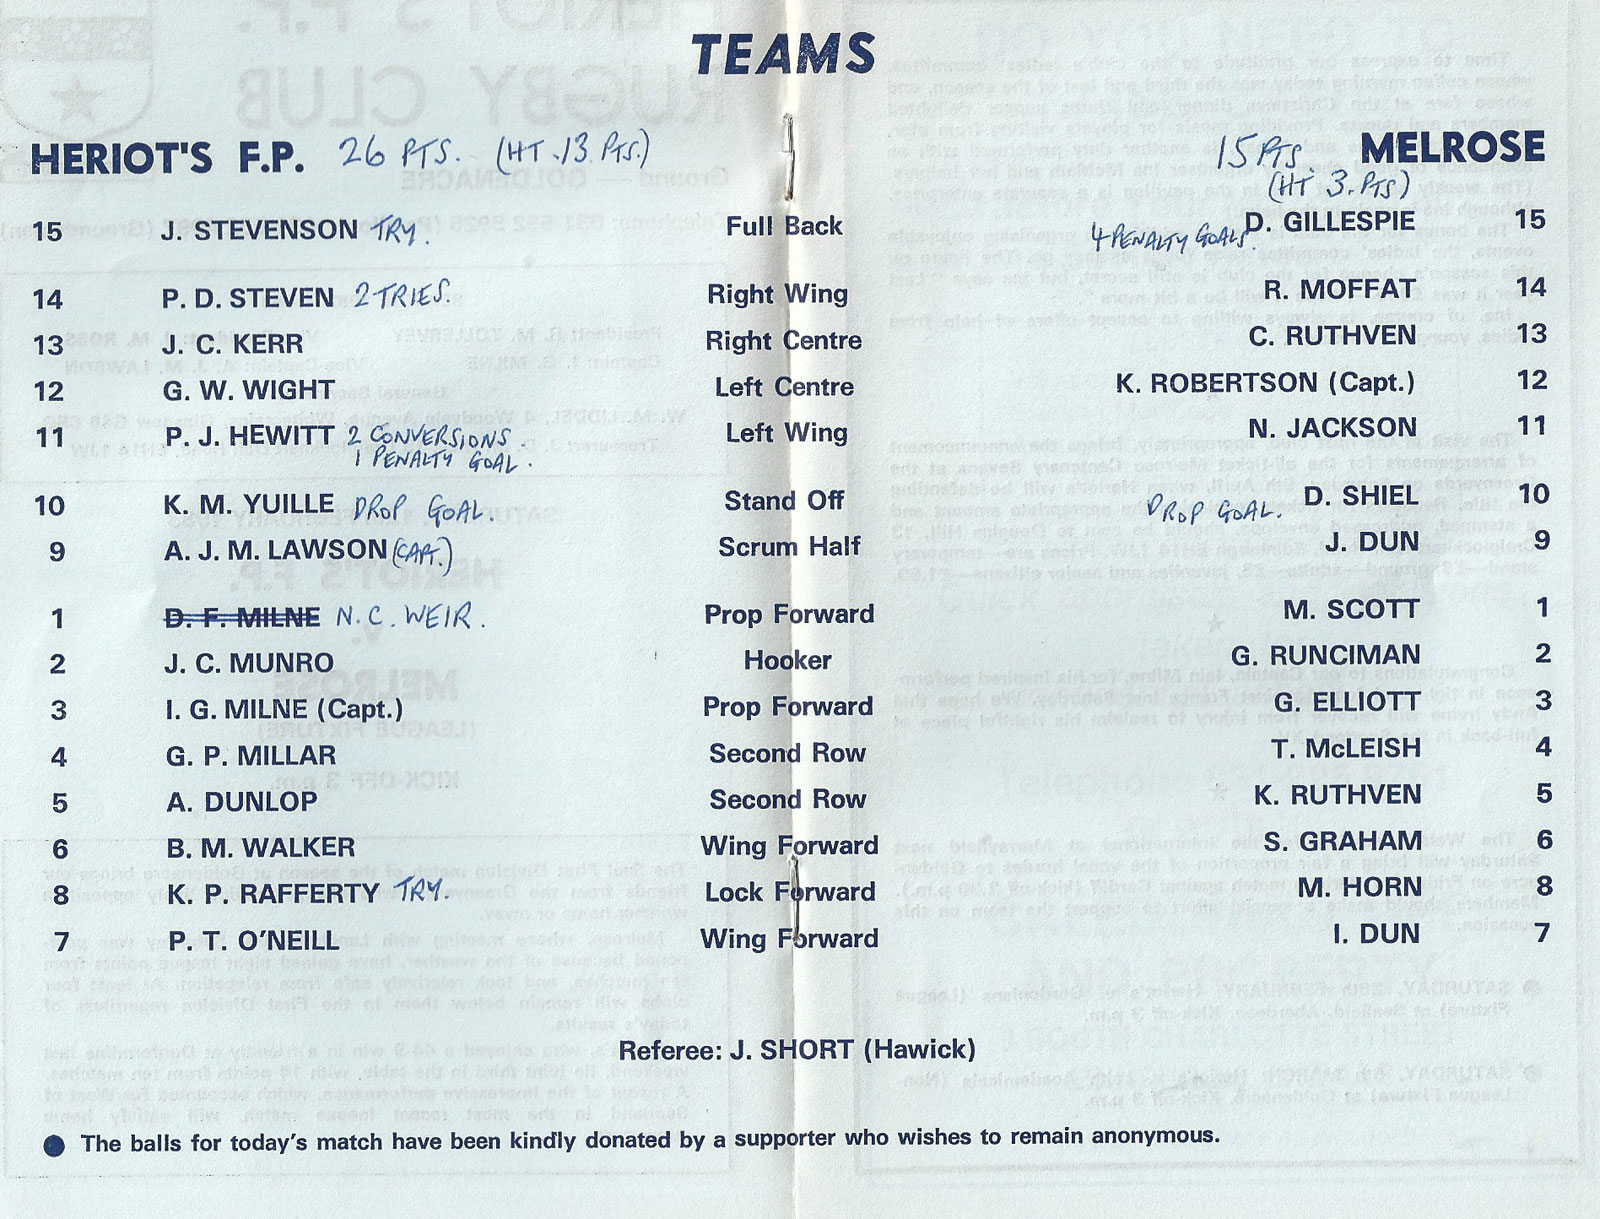 TEAMS
HERIOT'S F.P. 26 PTS. (HT. 13. PTS.) 15 PTS MELROSE
(HT. 3. PTS)
15 J. STEVENSON TRY. Full Back 4 PENALTY GOALS. D. GILLESPIE 15
14 P. D. STEVEN 2 TRIES. Right Wing R. MOFFAT 14
13 J. C. KERR Right Centre C. RUTHVEN 13
12 G. W. WIGHT Left Centre K. ROBERTSON (Capt.) 12
11 P. J. HEWITT 2 CONVERSIONS. Left Wing N. JACKSON 11
1 PENALTY GOAL.
10 K. M. YUILLE DROP GOAL. Stand Off DROP GOAL. D. SHIEL 10
9 A. J. M. LAWSON (CAPT.) Scrum Half J. DUN 9
1 D. F. MILNE N. C. WEIR. Prop Forward M. SCOTT 1
2 J. C. MUNRO Hooker G. RUNCIMAN 2
3 I. G. MILNE (Capt.) Prop Forward G. ELLIOTT 3
4 G. P. MILLAR Second Row T. McLEISH 4
5 A. DUNLOP Second Row K. RUTHVEN 5
6 B. M. WALKER Wing Forward S. GRAHAM 6
8 K. P. RAFFERTY TRY. Lock Forward M. HORN 8
7 P. T. O'NEILL Wing Forward I. DUN 7
Referee: J. SHORT (Hawick)
● The balls for today's match have been kindly donated by a supporter who wishes to remain anonymous.